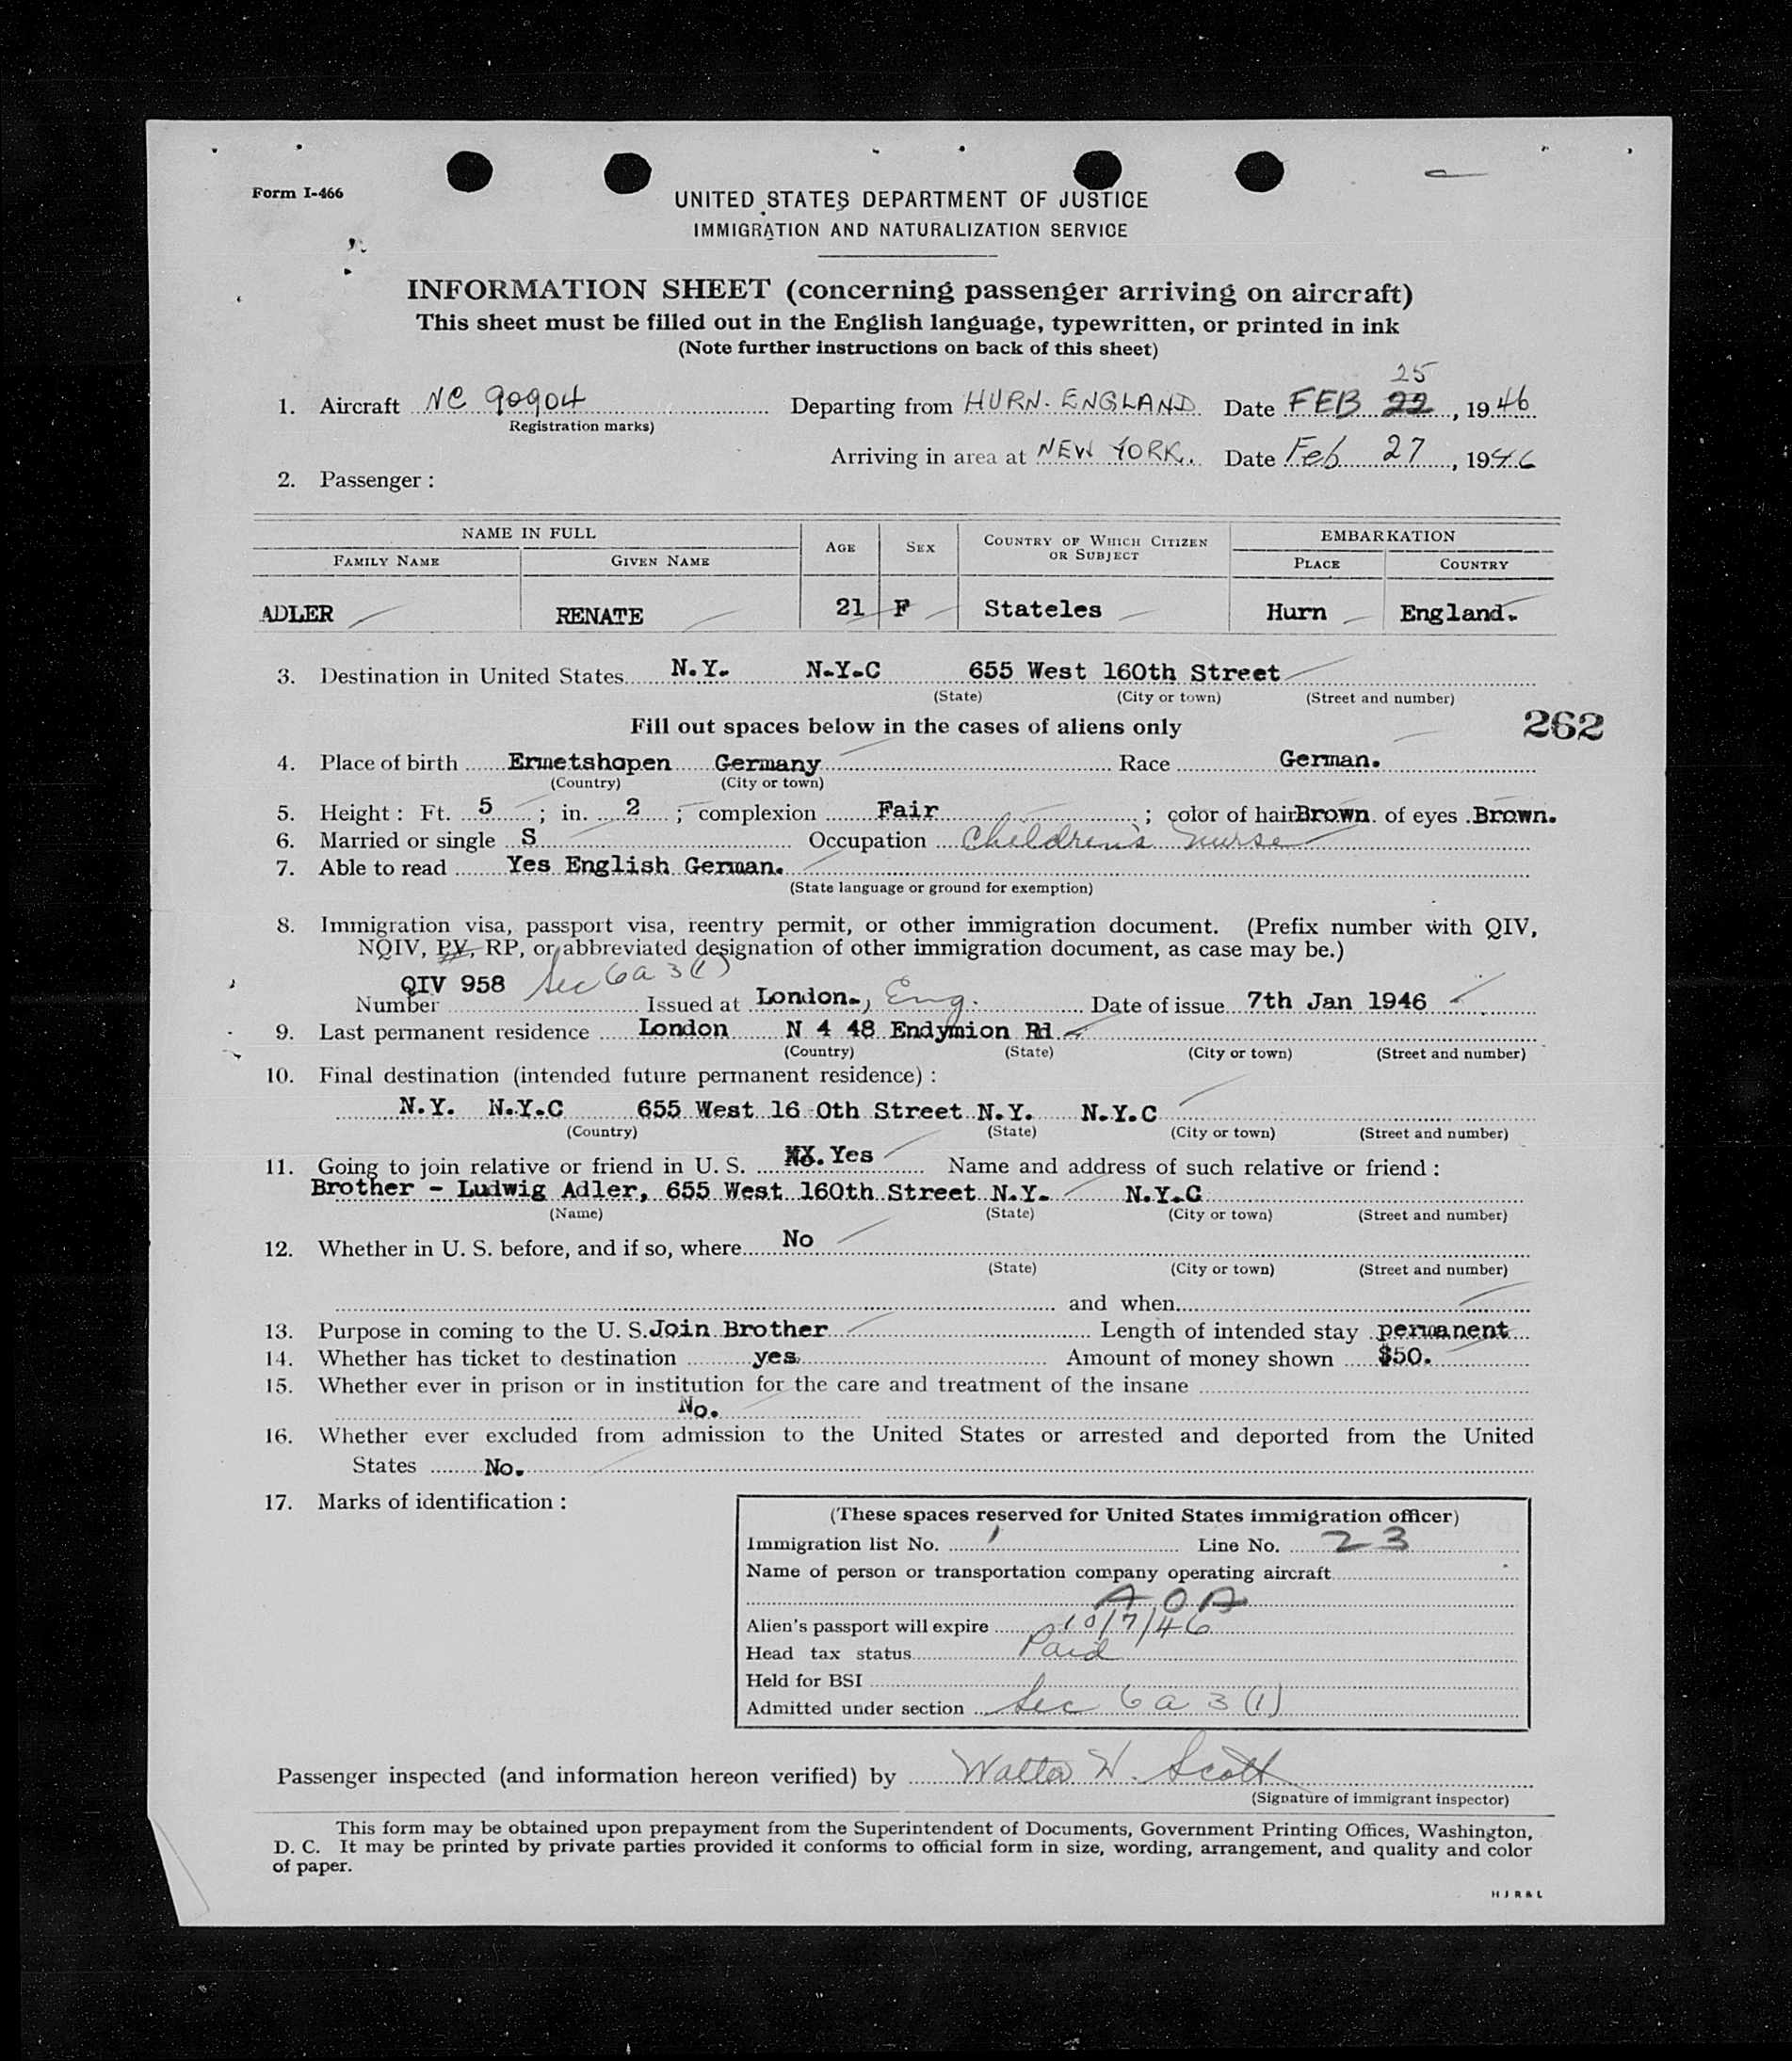 Form I-466
UNITED STATES DEPARTMENT OF JUSTICE
IMMIGRATION AND NATURALIZATION SERVICE
INFORMATION SHEET (concerning passenger arriving on aircraft)
This sheet must be filled out in the English language, typewritten, or printed in ink
(Note further instructions on back of this sheet)
25
1. Aircraft NC 90904 Departing from HURN. ENGLAND Date FEB 22, 1946
Registration marks)
Arriving in area at NEW YORK. Date Feb 27, 1946
2. Passenger :
NAME IN FULL AGE SEX COUNTRY OF WHICH CITIZEN OR SUBJECT EMBARKATION
FAMILY NAME GIVEN NAME PLACE COUNTRY
ADLER RENATE 21 F Stateles Hurn England.
3. Destination in United States N.Y. N.Y.C 655 West 160th Street
(State) (City or town) (Street and number)
Fill out spaces below in the cases of aliens only 262
4. Place of birth Ermetshopen Germany Race German.
(Country) (City or town)
5. Height : Ft. 5 ; in. 2 ; complexion Fair ; color of hair Brown of eyes Brown.
6. Married or single S Occupation Children's nurse
7. Able to read Yes English German.
(State language or ground for exemption)
8. Immigration visa, passport visa, reentry permit, or other immigration document. (Prefix number with QIV,
NQIV, PV, RP, or abbreviated designation of other immigration document, as case may be.)
Number QIV 958 Sec 6a 3(1) Issued at London., Eng. Date of issue 7th Jan 1946
9. Last permanent residence London N 4 48 Endymion Rd
(Country) (State) (City or town) (Street and number)
10. Final destination (intended future permanent residence) :
N.Y. N.Y.C 655 West 16 0th Street N.Y. N.Y.C
(Country) (State) (City or town) (Street and number)
11. Going to join relative or friend in U. S. Yes Name and address of such relative or friend :
Brother - Ludwig Adler, 655 West 160th Street N.Y. N.Y.C
(Name) (State) (City or town) (Street and number)
12. Whether in U. S. before, and if so, where No
(State) (City or town) (Street and number)
and when
13. Purpose in coming to the U. S. Join Brother Length of intended stay permanent
14. Whether has ticket to destination yes Amount of money shown $50.
15. Whether ever in prison or in institution for the care and treatment of the insane
No.
16. Whether ever excluded from admission to the United States or arrested and deported from the United
States No.
17. Marks of identification :
(These spaces reserved for United States immigration officer)
Immigration list No. 1 Line No. 23
Name of person or transportation company operating aircraft
A O A
Alien's passport will expire 10/7/46
Head tax status Paid
Held for BSI
Admitted under section Sec 6 a 3 (1)
Passenger inspected (and information hereon verified) by Walter W. Scott
(Signature of immigrant inspector)
This form may be obtained upon prepayment from the Superintendent of Documents, Government Printing Offices, Washington,
D. C. It may be printed by private parties provided it conforms to official form in size, wording, arrangement, and quality and color
of paper.
H J R & L